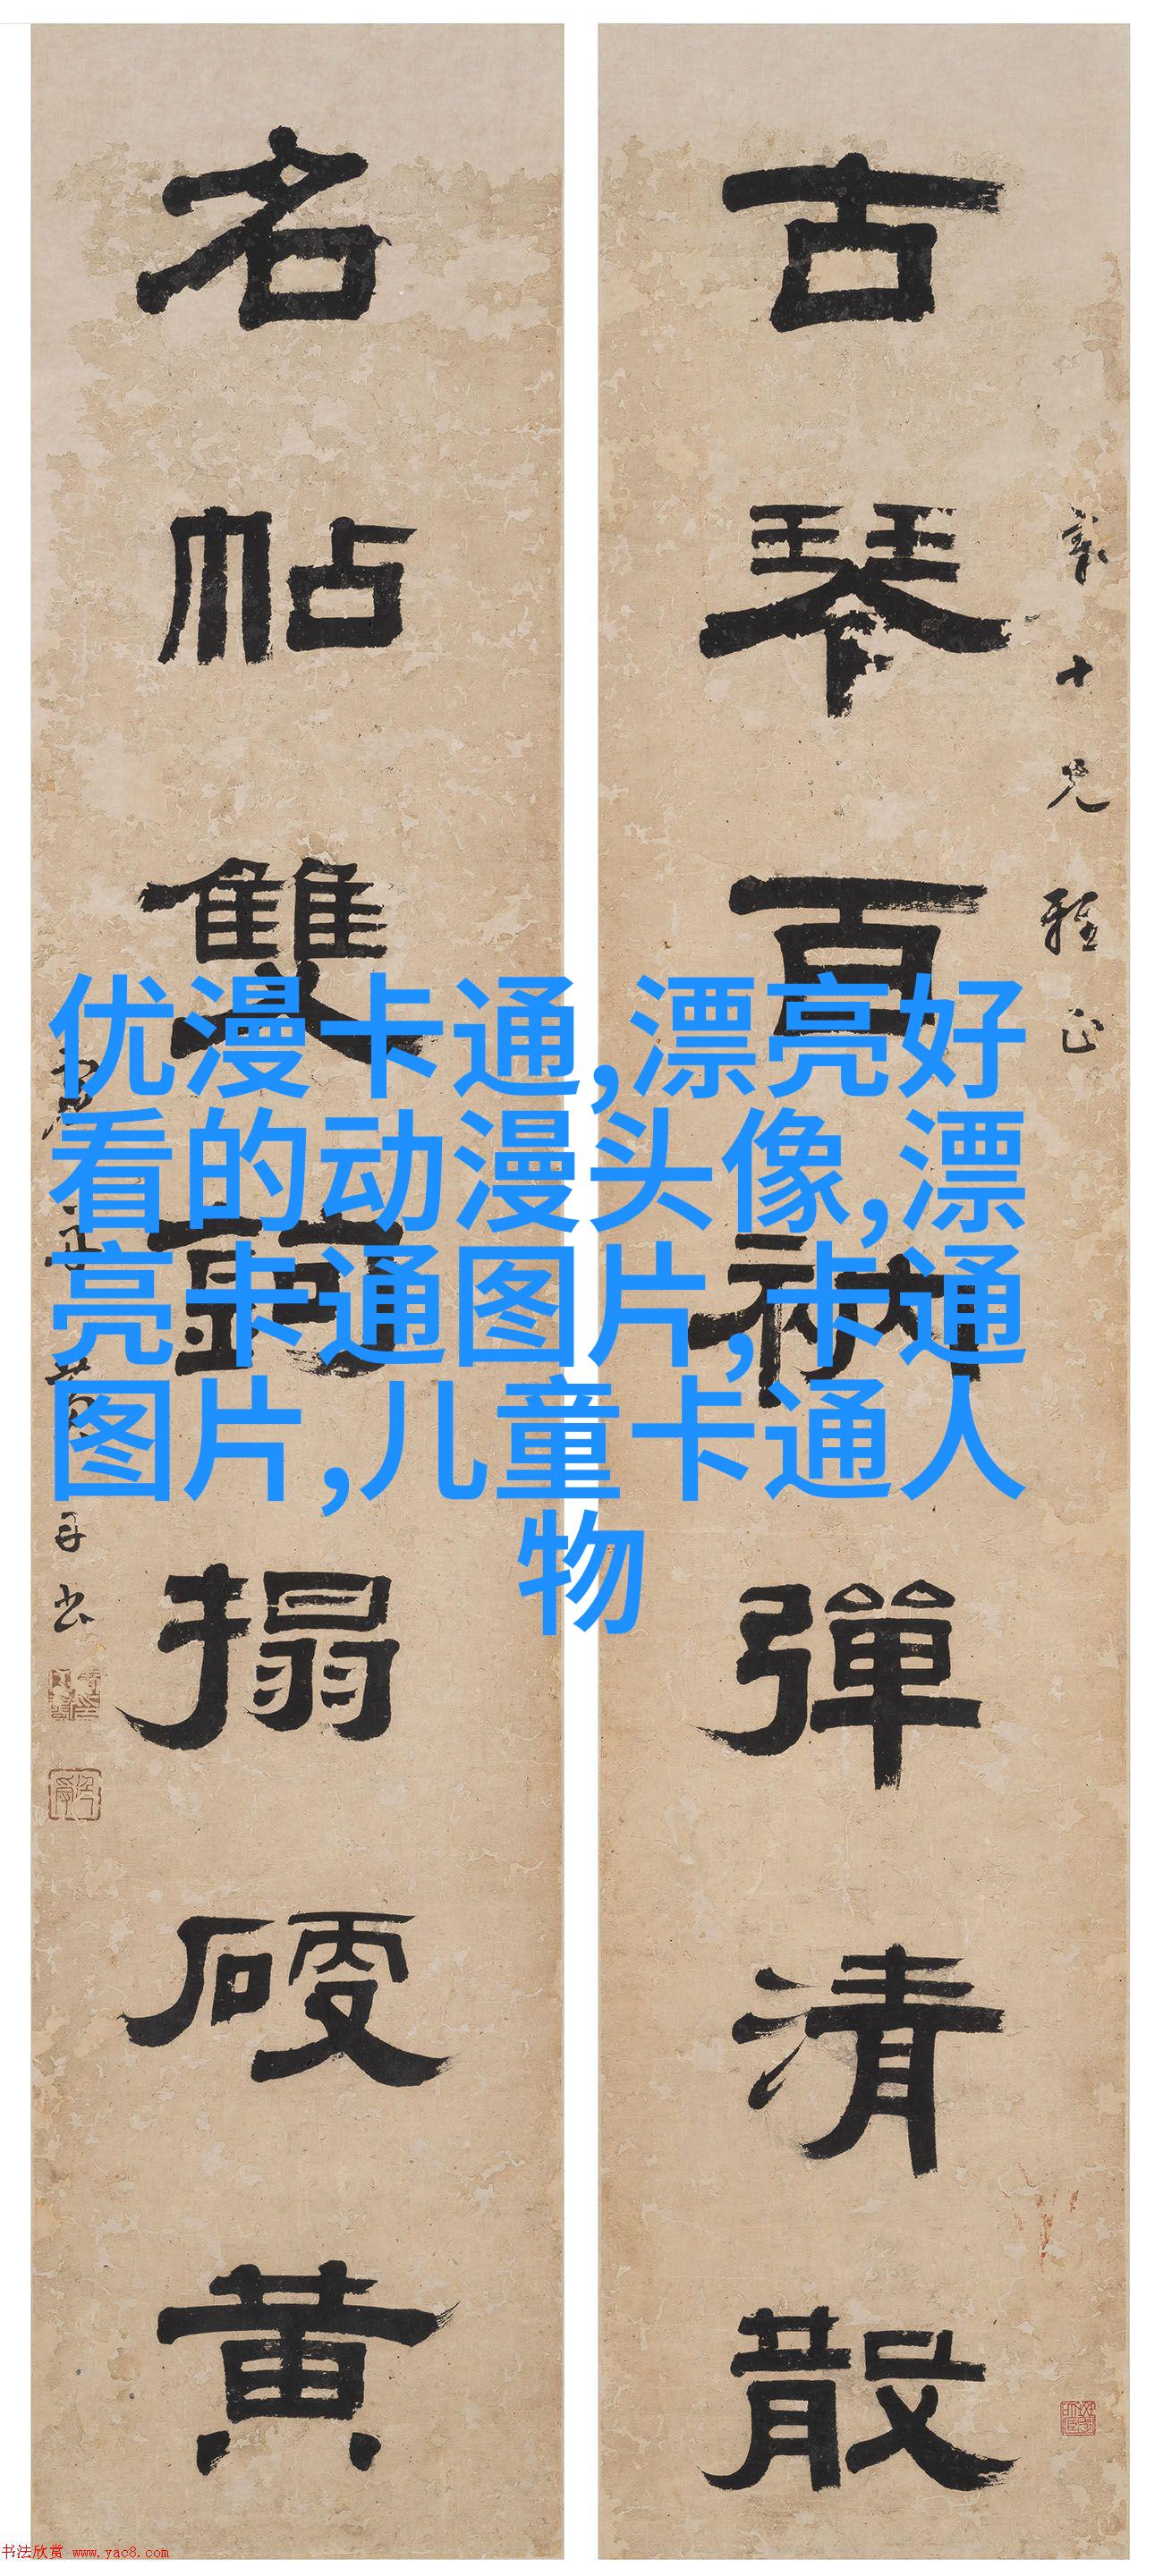 十兄雅正
古琴百衲彈清散
名帖雙鉤搨硬黃
书
优漫卡通,漂亮好
看的动漫头像,漂
亮卡通图片,卡通
图片,儿童卡通人
物
书法欣赏 www.yac8.com